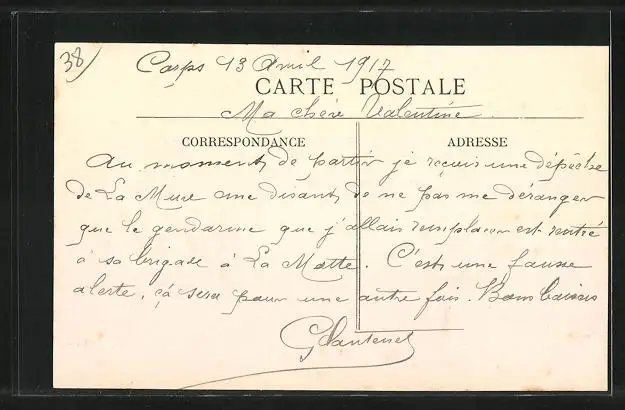 38)
Corps 13 Avril 1917
CARTE POSTALE
Ma chère Valentine.
CORRESPONDANCE ADRESSE
Au moment de partir je reçois une dépêche
de La Mure me disant de ne pas me déranger
que le gendarme que j'allais remplacer est rentré
à sa brigade à La Motte. C'est une fausse
alerte, çà sera pour une autre fois. Bons baisers